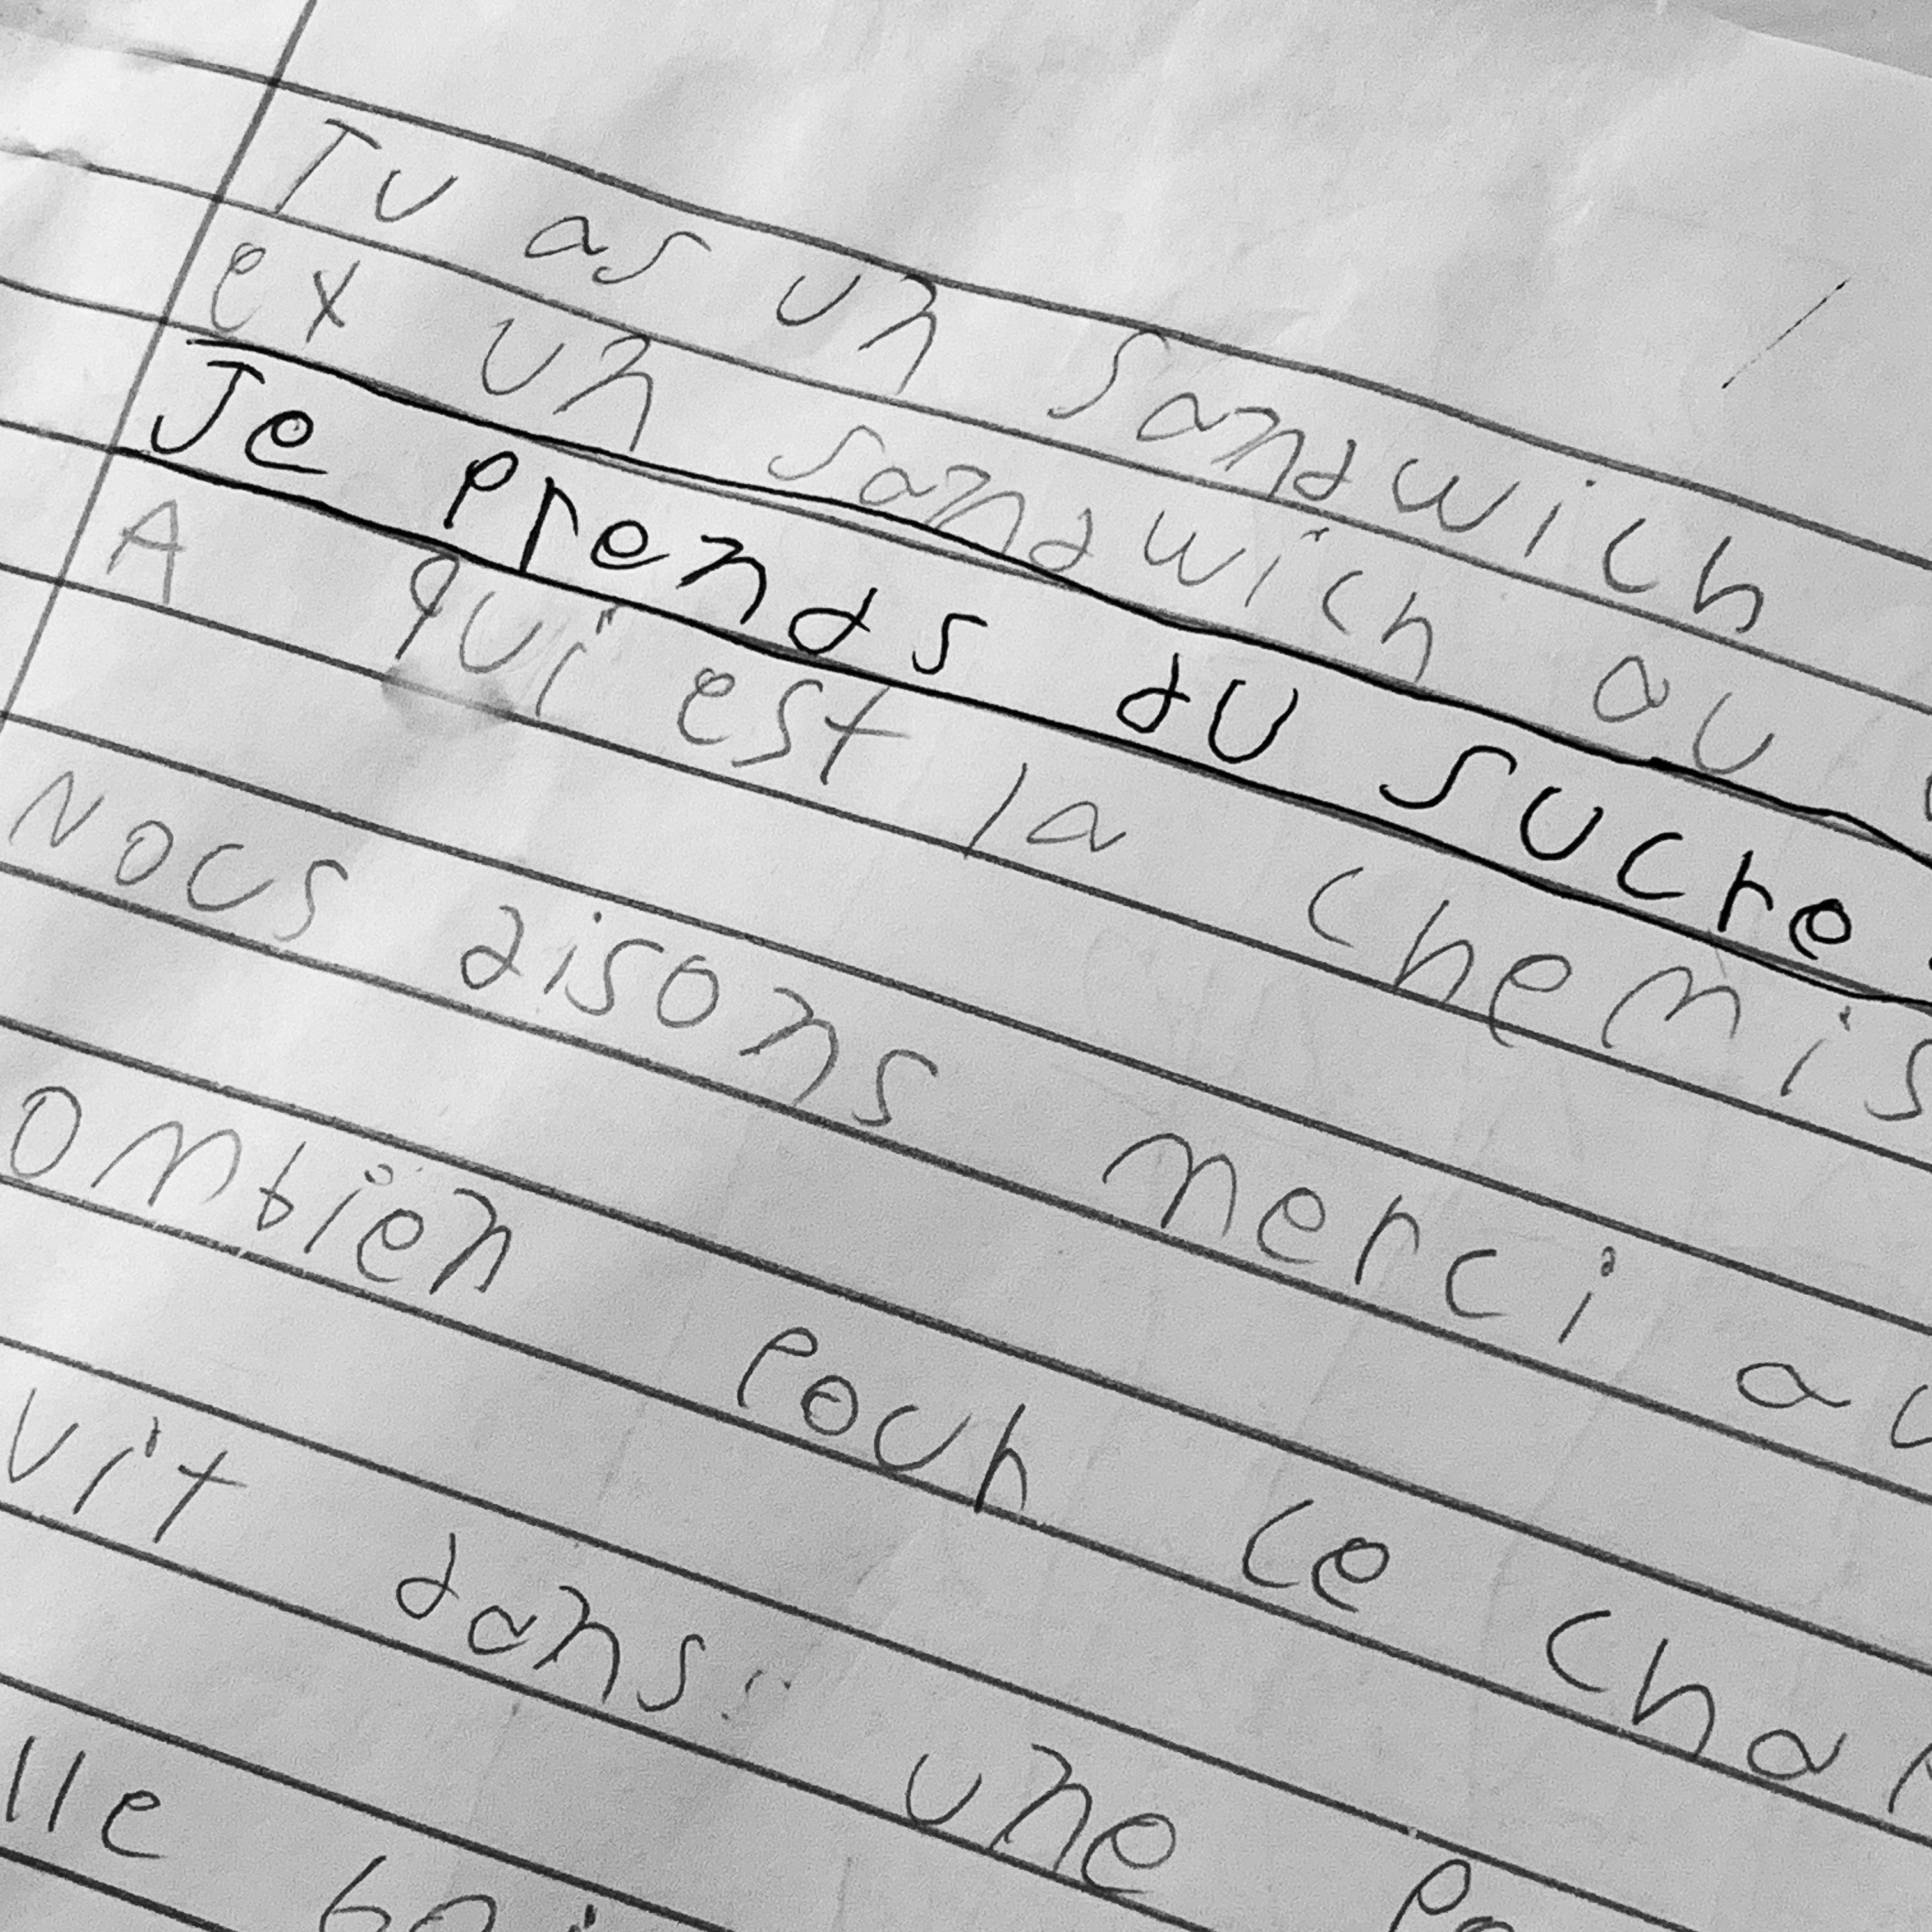 Tu as un sandwich
ex un sandwich au
Je prends du sucre.
A qui est la chemis
Nous disons merci au
ombien pour ce cha
vit dans une
lle